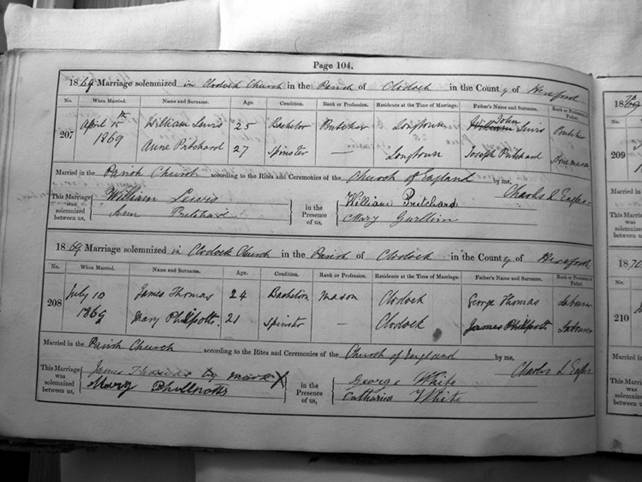 Page 104.
1869 Marriage solemnized in Clodock Church in the Parish of Clodock in the County of Hereford
No. When Married. Name and Surname. Age. Condition. Rank or Profession. Residence at the Time of Marriage. Father's Name and Surname. Rank or Profession of Father.
207 April 1869 William Lewis 25 Bachelor Butcher Longtown John Lewis Butcher
Anne Pritchard 27 Spinster — Longtown Joseph Pritchard
Married in the Parish Church according to the Rites and Ceremonies of the Church of England by me,
Charles L Eagles
This Marriage was solemnized between us, William Lewis in the Presence of us, William Pritchard
Ann Pritchard Mary
1869 Marriage solemnized in Clodock Church in the Parish of Clodock in the County of Hereford
No. When Married. Name and Surname. Age. Condition. Rank or Profession. Residence at the Time of Marriage. Father's Name and Surname. Rank or Profession of Father.
208 July 10 1869 James Thomas 24 Bachelor Mason Clodock George Thomas Labourer
Mary Phillpotts 21 Spinster — Clodock James Phillpotts Labourer
Married in the Parish Church according to the Rites and Ceremonies of the Church of England by me,
Charles L Eagles
This Marriage was solemnized between us, James Thomas by mark X in the Presence of us, George White
Mary Phillpotts Catharine White
187
No.
209
187
No.
210